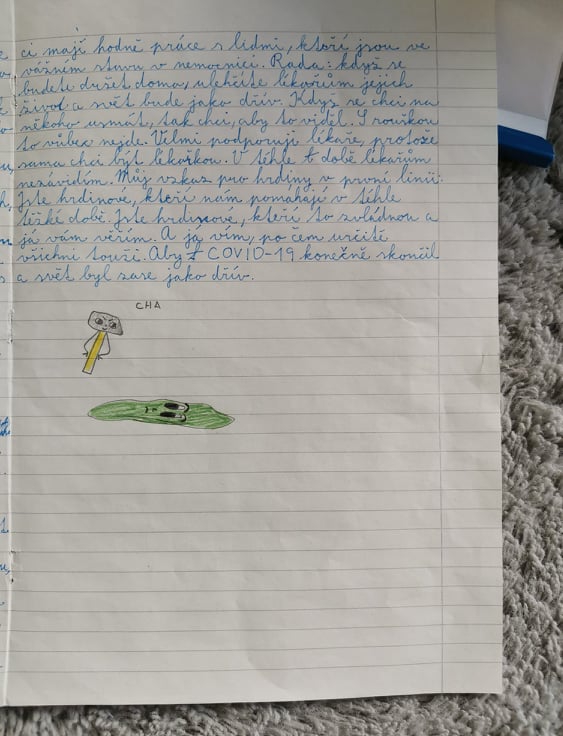 ci mají hodně práce s lidmi, kteří jsou ve
vážném stavu v nemocnici. Rada: když se
budete držet doma, ulehčíte lékařům jejich
život a svět bude jako dřív. Když se chci na
někoho usmát, tak chci, aby to viděl. S rouškou
to vůbec nejde. Velmi podporuji lékaře, protože
sama chci být lékařkou. V téhle době lékařům
nezávidím. Můj vzkaz pro hrdiny v první linii:
Jste hrdinové, kteří nám pomáhají v téhle
těžké době. Jste hrdinové, kteří to zvládnou a
já vám věřím. A já vím, po čem určitě
všichni touží. Aby COVID-19 konečně skončil
a svět byl zase jako dřív.
CHA